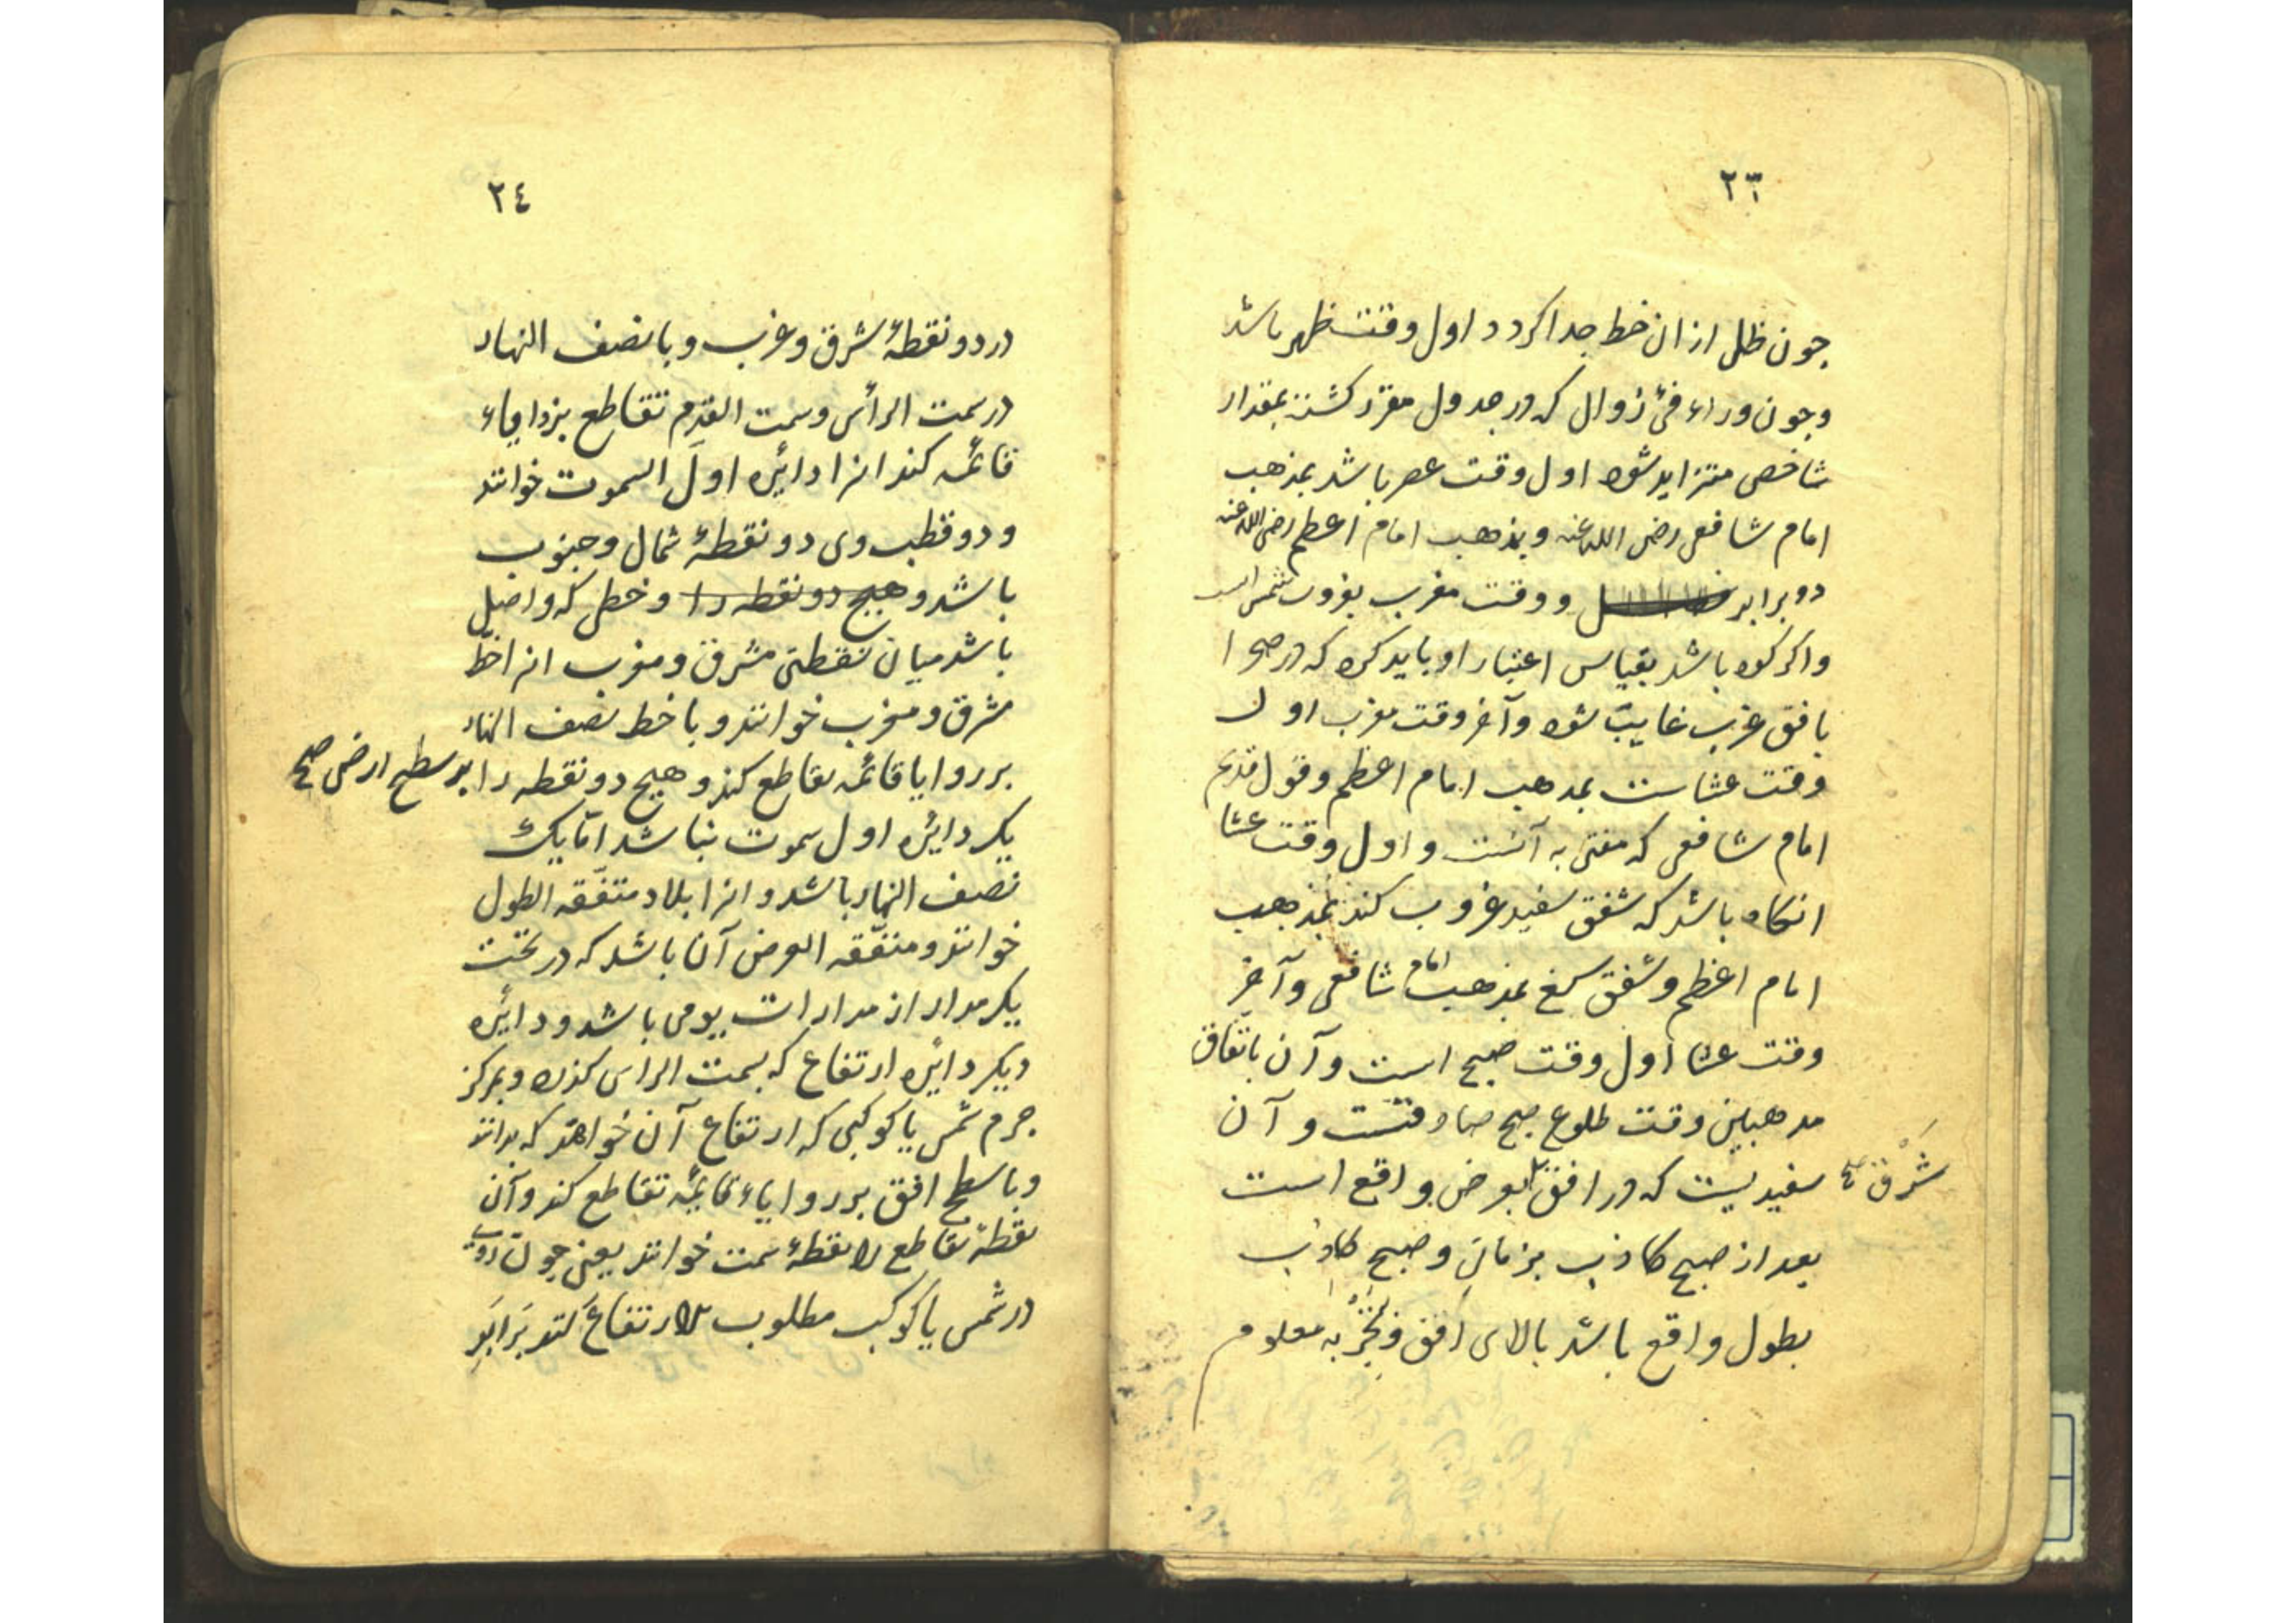 ٢٣
جون ظل از ان خط جدا كردد اول وقت ظهر باشد
وجون وراء فئ زوال كه در جدول مقرر كشته بمقدار
شاخص متزايد شود اول وقت عصر باشد بمذهب
امام شافعى رضى الله عنه وبمذهب امام اعظم رضى الله عنه
دو برابر ووقت مغرب بغروب شمس است
واكر كوه باشد بقياس اعتبار او بايد كرد كه در صحرا
بافق غرب غايب شود وآخر وقت مغرب اول
وقت عشاست بمذهب امام اعظم وقول قديم
امام شافعى كه مفتى به آنست واول وقت عشا
انكاه باشد كه شفق سفيد غروب كند بمذهب
امام اعظم وشفق سرخ بمذهب امام شافعى وآخر
وقت عشا اول وقت صبح است وآن باتفاق
مذهبين وقت طلوع صبح صادقست وآن
سفيديست كه در افق شرق صح بعرض واقع است
بعد از صبح كاذب بزمانى وصبح كاذب
بطول واقع باشد بالاى افق وتجربه معلوم
٢٤
در دو نقطهٔ شرق وغرب وبا نصف النهار
در سمت الرأس وسمت القدم تقاطع بزواياء
قائمه كند انرا دائره اول السموت خوانند
ودو قطب وى دو نقطهٔ شمال وجنوب
باشد وهيج دو نقطه را وخطى كه واصل
باشد ميان نقطتى مشرق ومغرب انرا خط
مشرق ومغرب خوانند وبا خط نصف النهار
بر زوايا قائمه تقاطع كند وهيج دو نقطه را بر سطح ارض صح
يك دائره اول سموت نباشد اما يك
نصف النهار باشد وانرا بلاد متفقه الطول
خوانند ومتفقه العرض آن باشد كه در تحت
يك مدار از مدارات يومى باشد ودائره
ديكر دائره ارتفاع كه بسمت الراس كذرد وبمركز
جرم شمس يا كوكبى كه ارتفاع آن خواهند كه بدانند
وبا سطح افق بر زواياء قايمه تقاطع كند وآن
نقطهٔ تقاطع را نقطهٔ سمت خوانند يعنى چون روى
در شمس يا كوكب مطلوب الارتفاع كنند برابر